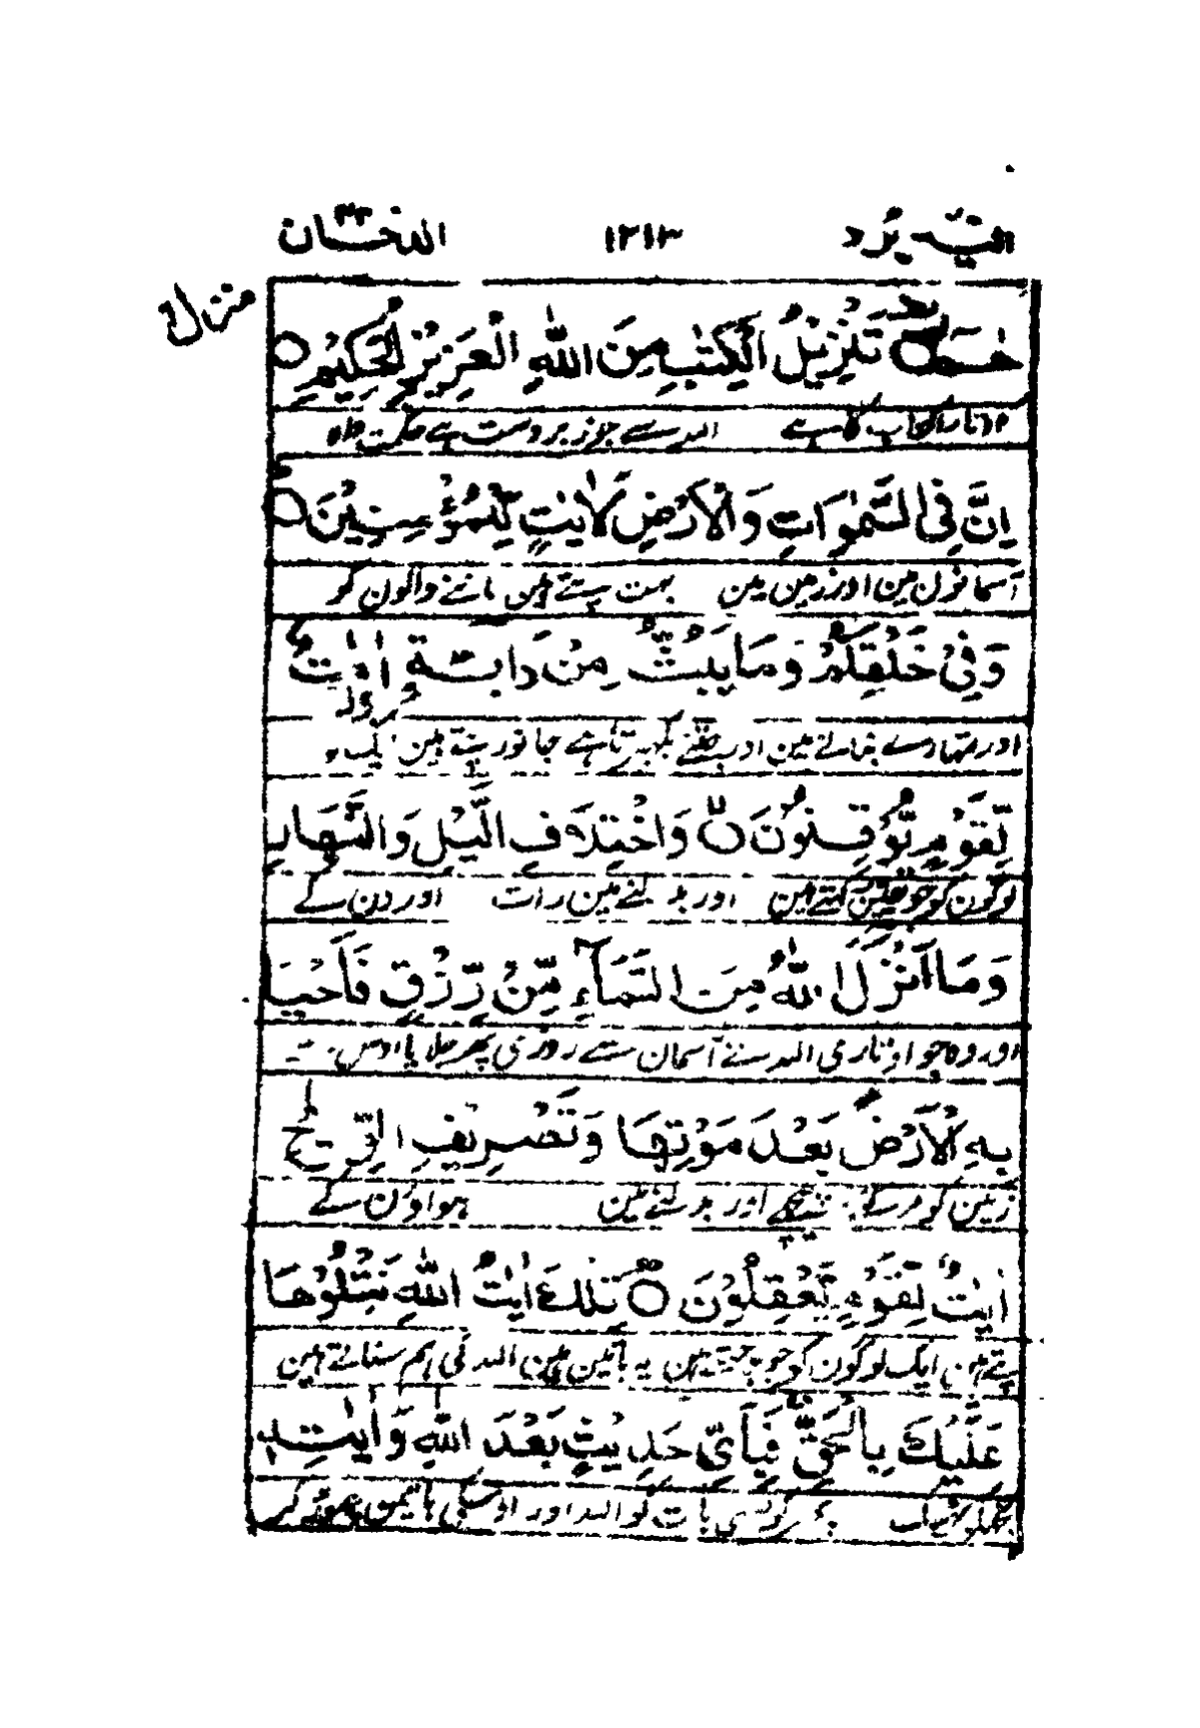 الیہ یرد ۱۲۱۳ الدخان ۴۴
منزل
حٰمٓ تَنْزِيْلُ الْكِتٰبِ مِنَ اللّٰهِ الْعَزِيْزِ الْحَكِيْمِ
اتارا کتاب کا ہے اللہ سے جو زبردست ہے حکمت والا
اِنَّ فِي السَّمٰوٰتِ وَالْاَرْضِ لَاٰيٰتٍ لِّلْمُؤْمِنِيْنَ
آسمانوں مین اور زمین مین بہت پتے ہین ماننے والون کو
وَفِيْ خَلْقِكُمْ وَمَا يَبُثُّ مِنْ دَابَّةٍ اٰيٰتٌ
اور تمہارے بنانے مین اور جتنے بکھیرتا ہے جانور پتے ہین ایک
لِّقَوْمٍ يُّوْقِنُوْنَ وَاخْتِلَافِ الَّيْلِ وَالنَّهَارِ
لوگون کو جو یقین رکھتے ہین اور بدلنے مین رات اور دن کے
وَمَا اَنْزَلَ اللّٰهُ مِنَ السَّمَآءِ مِنْ رِّزْقٍ فَاَحْيَا
اور وہ جو اوتاری اللہ نے آسمان سے روزی پھر جلایا اوس سے
بِهِ الْاَرْضَ بَعْدَ مَوْتِهَا وَتَصْرِيْفِ الرِّيٰحِ
زمین کو مرگئے پیچھے اور بدلنے مین ہواؤن کے
اٰيٰتٌ لِّقَوْمٍ يَّعْقِلُوْنَ تِلْكَ اٰيٰتُ اللّٰهِ نَتْلُوْهَا
پتے ہین ایک لوگون کو جو بوجھتے ہین یہ باتین ہین اللہ کی ہم سناتے ہین
عَلَيْكَ بِالْحَقِّ فَبِاَيِّ حَدِيْثٍ بَعْدَ اللّٰهِ وَاٰيٰتِهٖ
تجھکو ٹھیک پھر کونسی بات کو اللہ اور اوسکی باتین چھوڑ کر